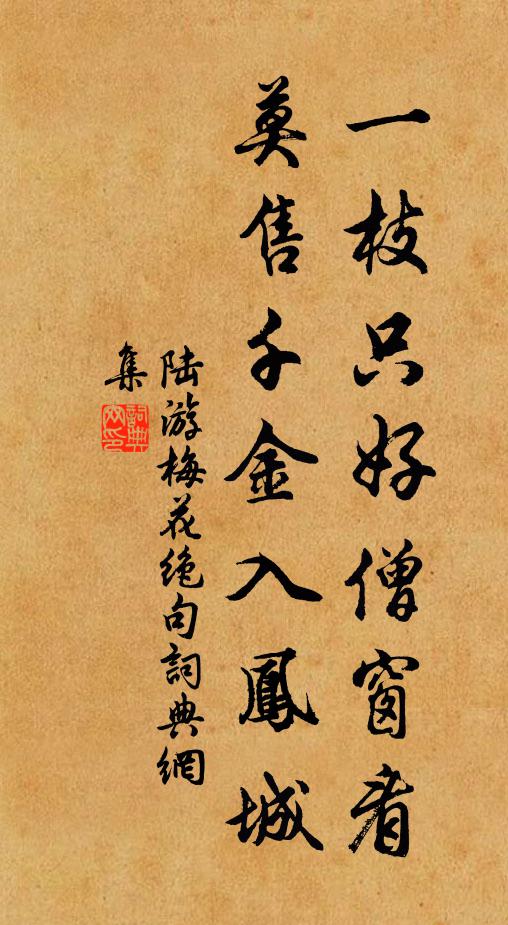 一枝只好僧窗看
莫售千金入鳳城
陸游梅花絶句詞典網
集
詞典
网印